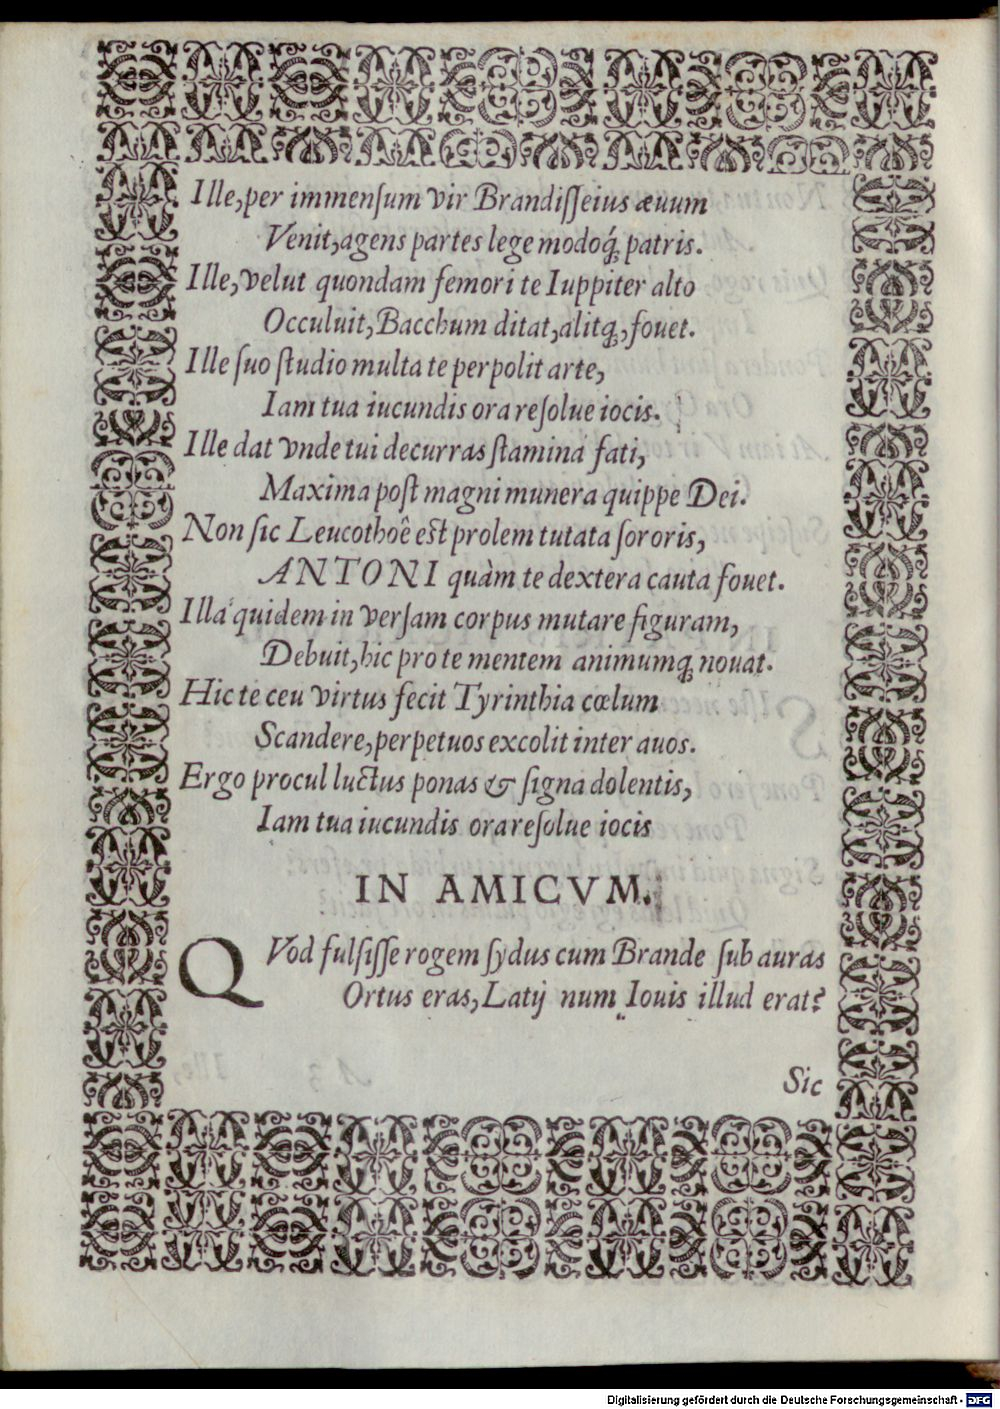 Ille, per immenſum vir Brandiſſeius æuum
Venit, agens partes lege modoq́; patris.
Ille, velut quondam femori te Iuppiter alto
Occuluit, Bacchum ditat, alitq;, fouet.
Ille ſuo ſtudio multa te perpolit arte,
Iam tua iucundis ora reſolue iocis.
Ille dat vnde tui decurras ſtamina fati,
Maxima poſt magni munera quippe Dei.
Non ſic Leucothoê est prolem tutata ſororis,
ANTONI quàm te dextera cauta fouet.
Illa quidem in verſam corpus mutare figuram,
Debuit, hic pro te mentem animumq; nouat.
Hic te ceu virtus fecit Tyrinthia cœlum
Scandere, perpetuos excolit inter auos.
Ergo procul luctus ponas & ſigna dolentis,
Iam tua iucundis ora reſolue iocis
IN AMICVM.
QVod fulſiſſe rogem ſydus cum Brande ſub auras
Ortus eras, Latij num Iouis illud erat?
Sic
Digitalisierung gefördert durch die Deutsche Forschungsgemeinschaft - DFG